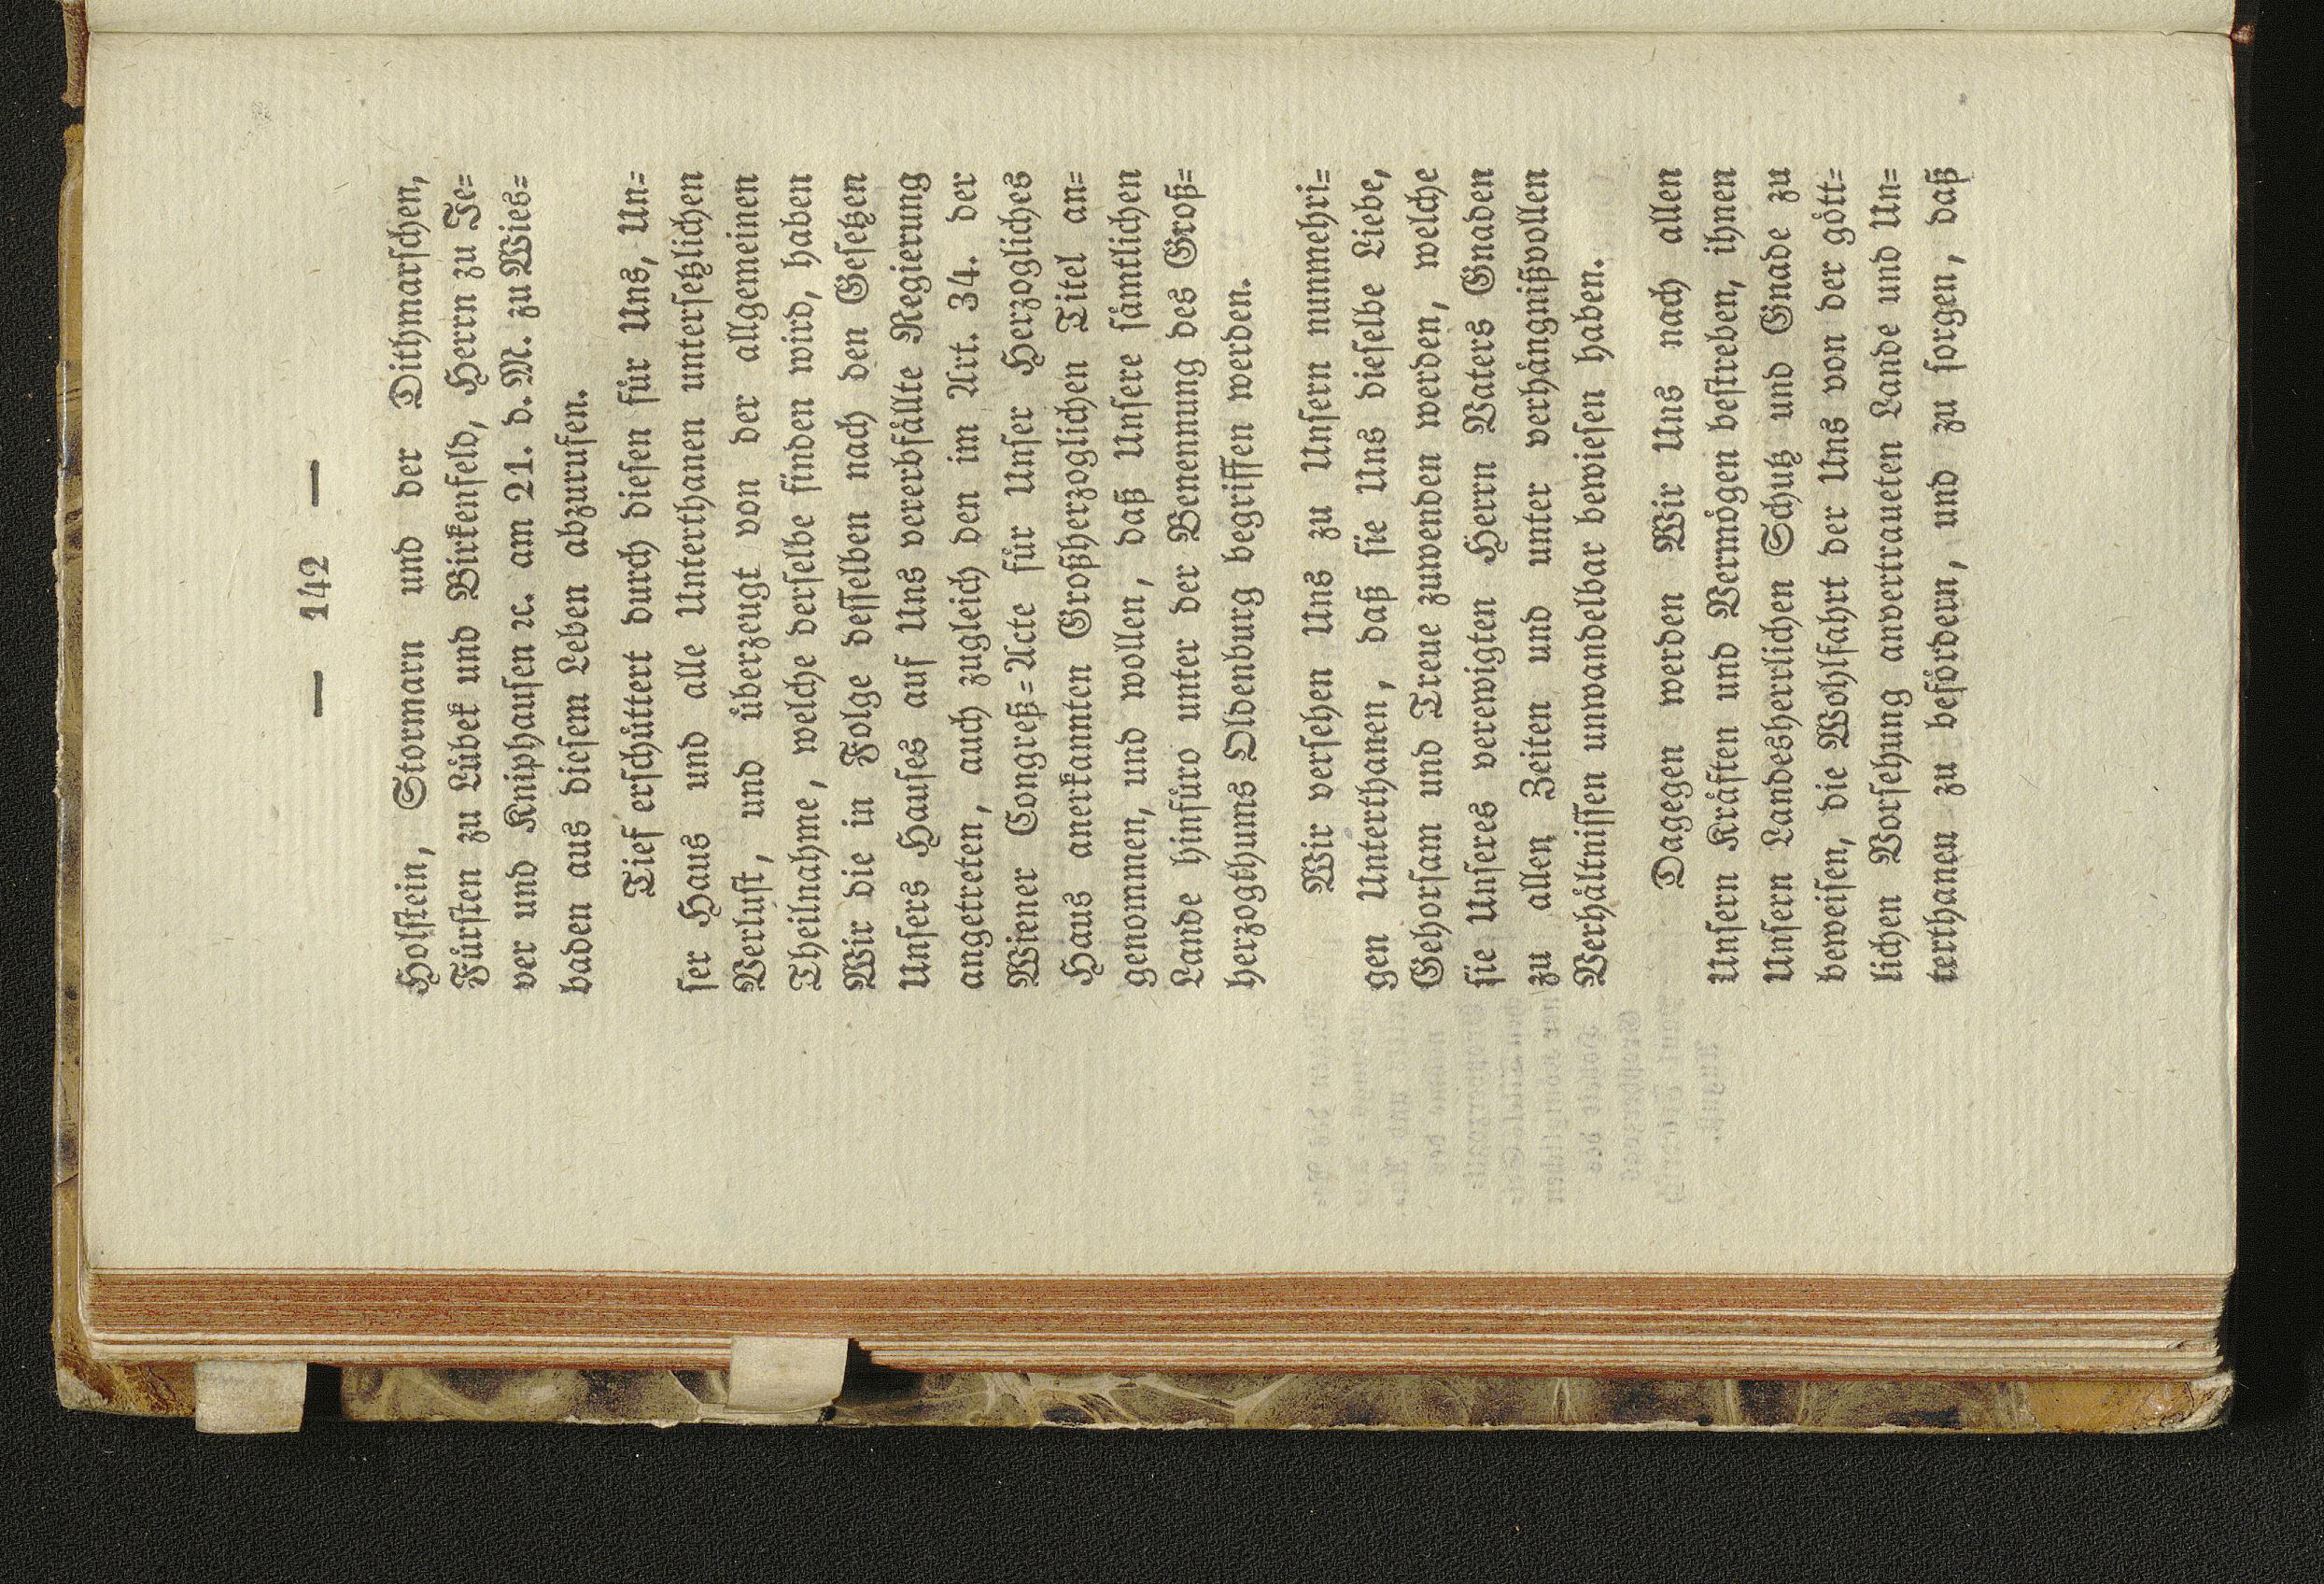 — 142 —
Holstein, Stormarn und der Dithmarschen,
Fürsten zu Lübek und Birkenfeld, Herrn zu Je=
ver und Kniphausen ꝛc. am 21. d. M. zu Wies=
baden aus diesem Leben abzurufen.
Tief erschüttert durch diesen für Uns, Un=
ser Haus und alle Unterthanen unersetzlichen
Verlust, und überzeugt von der allgemeinen
Theilnahme, welche derselbe finden wird, haben
Wir die in Folge desselben nach den Gesetzen
Unsers Hauses auf Uns vererbfällte Regierung
angetreten, auch zugleich den im Art. 34. der
Wiener Congreß=Acte für Unser Herzogliches
Haus anerkannten Großherzoglichen Titel an=
genommen, und wollen, daß Unsere sämtlichen
Lande hinfüro unter der Benennung des Groß=
herzogthums Oldenburg begriffen werden.
Wir versehen Uns zu Unsern nunmehri=
gen Unterthanen, daß sie Uns dieselbe Liebe,
Gehorsam und Treue zuwenden werden, welche
sie Unseres verewigten Herrn Vaters Gnaden
zu allen Zeiten und unter verhängnißvollen
Verhältnissen unwandelbar bewiesen haben.
Dagegen werden Wir Uns nach allen
Unsern Kräften und Vermögen bestreben, ihnen
Unsern Landesherrlichen Schutz und Gnade zu
beweisen, die Wohlfahrt der Uns von der gött=
lichen Vorsehung anvertraueten Lande und Un=
terthanen zu befördern, und zu sorgen, daß